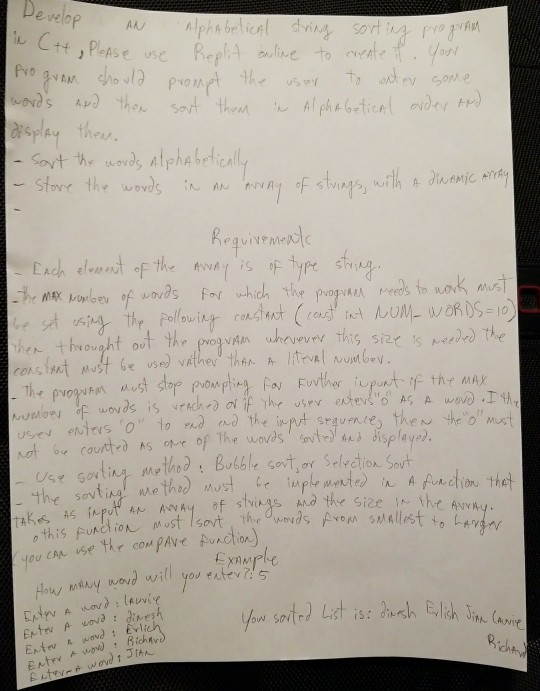 Develop AN Alphabetical string sorting program
in C++, PLEASE use Replit online to create it. Your
Program should prompt the user to enter some
words AND then sort them in Alphabetical order AND
display them.
- Sort the words Alphabetically
- Store the words in AN Array of strings, with A dinamic Array
-
Requirements
- Each element of the Array is of type string.
- The MAX Number of words For which the program needs to work must
be set using the Following constant (const int NUM-WORDS=10)
then throught out the program wherever this size is needed the
constant must be used rather than A literal Number.
- The program must stop prompting For Further inpunt if the MAX
Number of words is reached or if the user enters "0" AS A word. If the
user enters "0" to end end the input sequence, then the "0" must
not be counted as one of the words sorted and displayed.
- Use sorting method: Bubble sort, or Selection Sort
- The sorting method must be implemented in A function that
takes AS input AN Array of strings AND the size in the Array.
o this Function must sort the words From smallest to Larger
(you can use the compare function)
EXAMPLE
How many word will you enter?: 5
Enter A word: laurie
Enter A word: dinesh
Enter A word: Erlich
Enter A word: Richard
Enter A word: JiAN
Your sorted List is: dinesh Erlish Jian Laurie
Richard